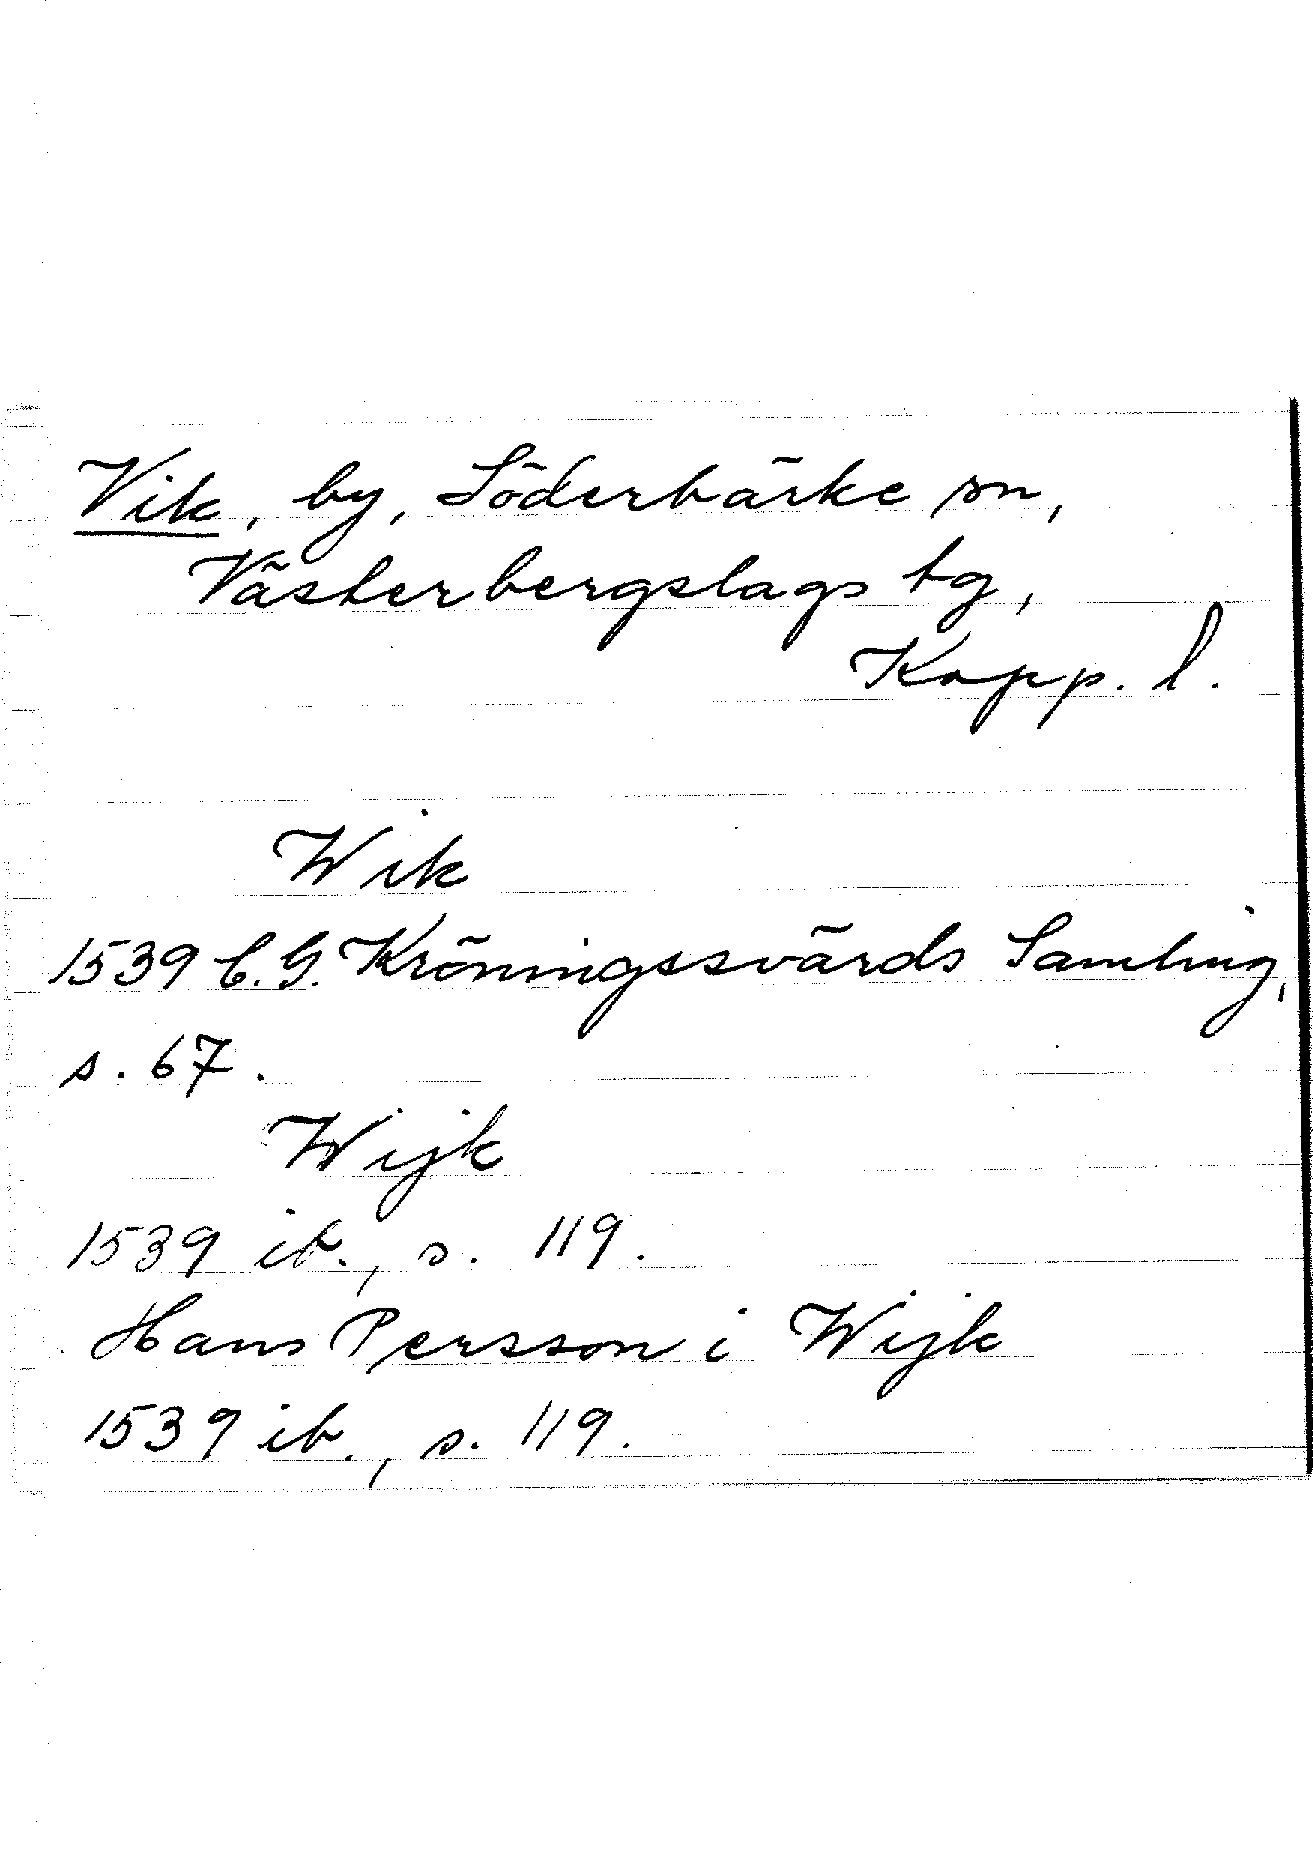 Vik, by, Söderbärke sn,
Västerbergslags tg,
Kopp. l.
Wik
1539 C.G. Kröningssvärds Samling,
s. 67.
Wijk
1539 ib., s. 119.
Hans Persson i Wijk
1539 ib., s. 119.